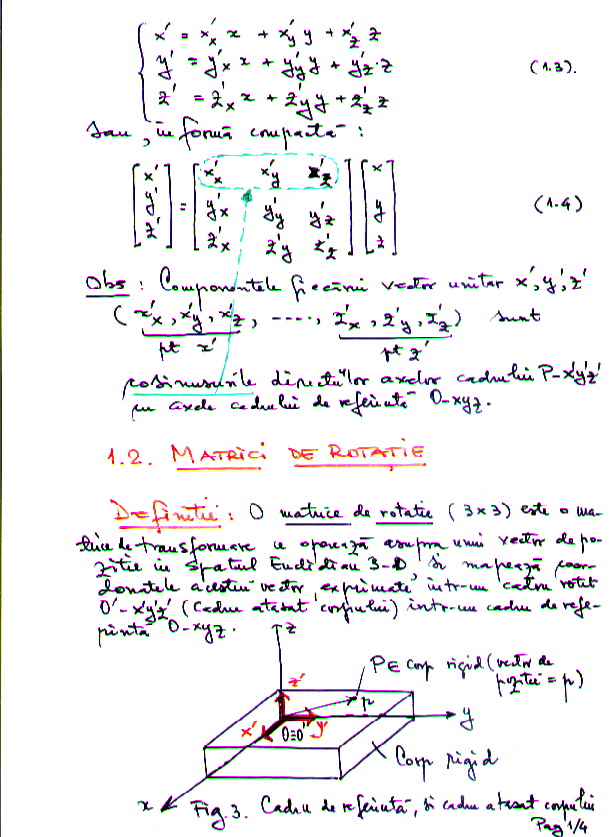 x' = x'x x + x'y y + x'z z
y' = y'x x + y'y y + y'z · z (1.3).
z' = z'x x + z'y y + z'z z
Sau, în formă compactă :
[x' y' z'] = [x'x x'y x'z ; y'x y'y y'z ; z'x z'y z'z] [x y z] (1.4)
Obs : Componentele fiecărui vector unitar x', y', z'
( x'x , x'y , x'z , ----, z'x , z'y , z'z ) sunt
pt x' pt z'
cosinusurile directoilor axelor cadrului P-x'y'z'
cu axele cadrului de referință O-xyz.
1.2. MATRICI DE ROTAȚIE
Definiție : O matrice de rotație (3×3) este o ma-
trice de transformare ce operează asupra unui vector de po-
ziție în spațiul Euclidian 3-D, și mapează coor-
donatele acestui vector, exprimate într-un cadru rotit
O'-x'y'z' (cadru atașat corpului) într-un cadru de refe-
rință O-xyz.
z
z'
P∈ corp rigid (vector de
poziție = p)
p
x' O≡O' y' y
Corp rigid
x
Fig. 3. Cadru de referință, și cadru atașat corpului
Pag 1/4